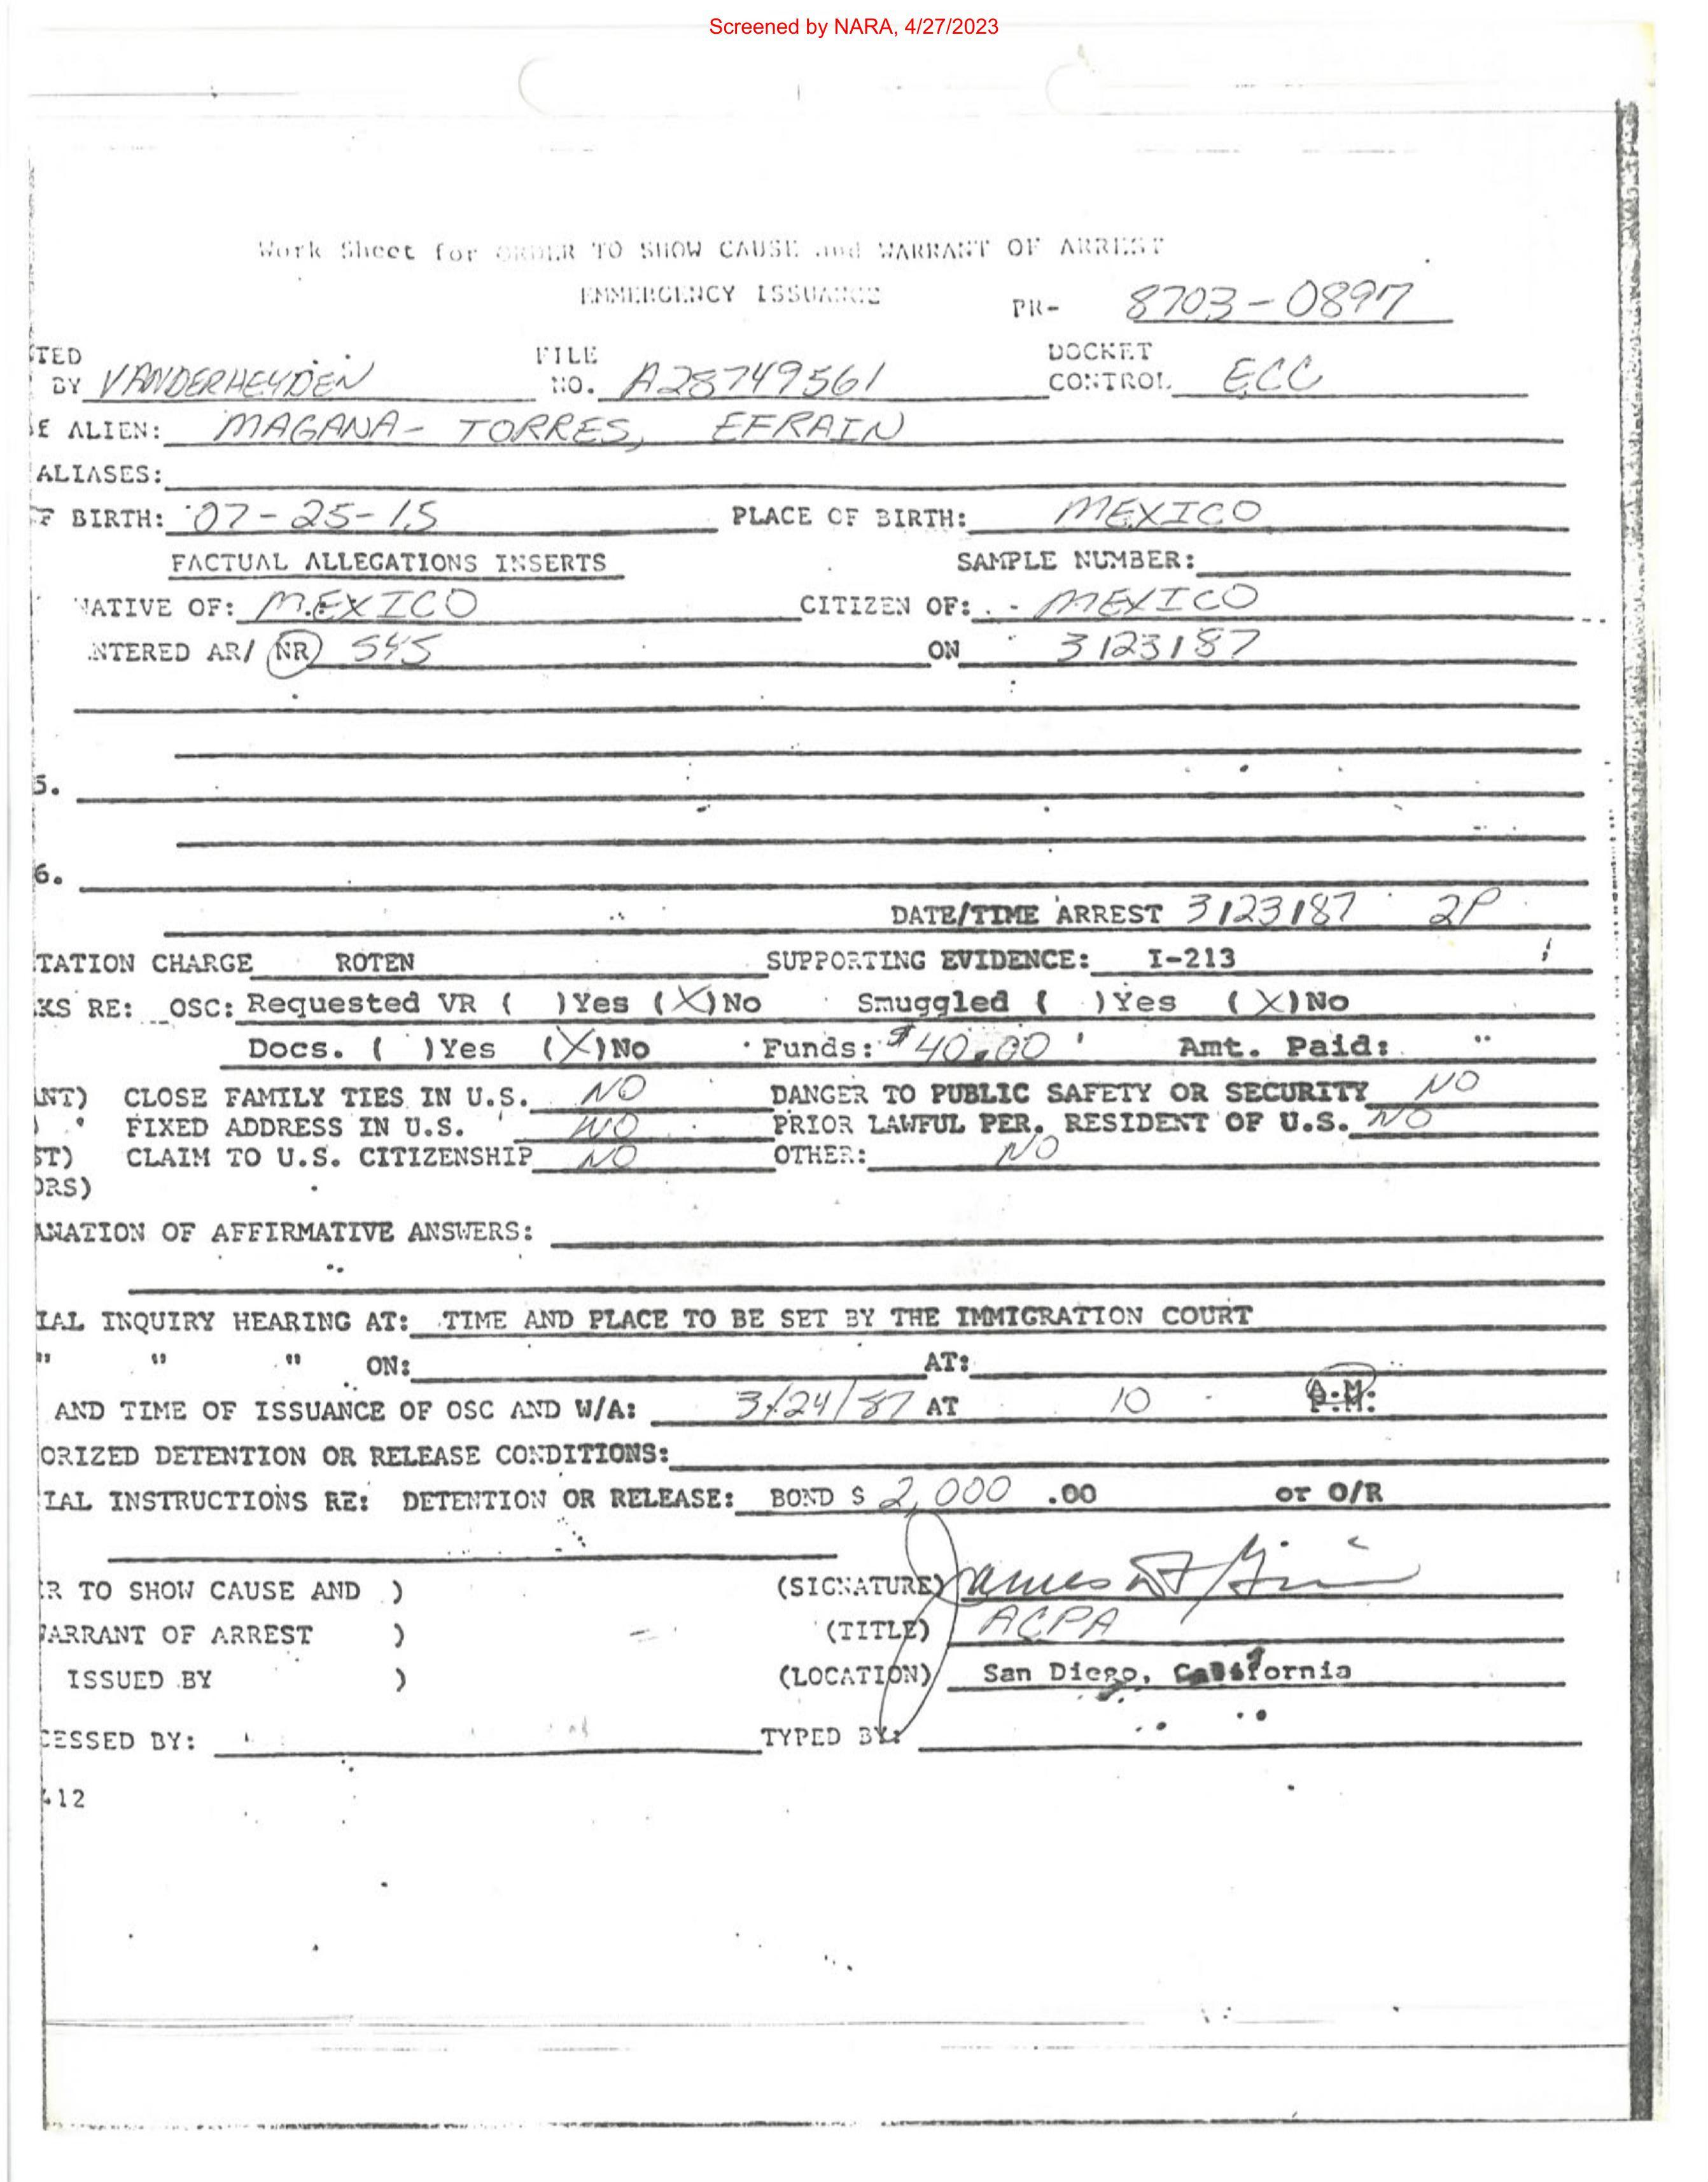 Screened by NARA, 4/27/2023
Work Sheet for ORDER TO SHOW CAUSE and WARRANT OF ARREST
EMMERGENCY ISSUANCE PR- 8703-0897
TED FILE DOCKET
BY VANDERHEYDEN NO. A28749561 CONTROL ECC
E ALIEN: MAGANA- TORRES, EFRAIN
ALIASES:
F BIRTH: 07-25-15 PLACE OF BIRTH: MEXICO
FACTUAL ALLEGATIONS INSERTS SAMPLE NUMBER:
NATIVE OF: MEXICO CITIZEN OF: MEXICO
NTERED AR/ NR S4S ON 3/23/87
5.
6.
DATE/TIME ARREST 3/23/87 2P
TATION CHARGE ROTEN SUPPORTING EVIDENCE: I-213
KS RE: OSC: Requested VR ( )Yes (X)No Smuggled ( )Yes (X)No
Docs. ( )Yes (X)No Funds: $40.00 Amt. Paid: "
ANT) CLOSE FAMILY TIES IN U.S. NO DANGER TO PUBLIC SAFETY OR SECURITY NO
) FIXED ADDRESS IN U.S. NO PRIOR LAWFUL PER. RESIDENT OF U.S. NO
ST) CLAIM TO U.S. CITIZENSHIP NO OTHER: NO
ORS)
ANATION OF AFFIRMATIVE ANSWERS:
IAL INQUIRY HEARING AT: TIME AND PLACE TO BE SET BY THE IMMIGRATION COURT
" " " ON: AT:
AND TIME OF ISSUANCE OF OSC AND W/A: 3/24/87 AT 10 A.M. P.M.
ORIZED DETENTION OR RELEASE CONDITIONS:
IAL INSTRUCTIONS RE: DETENTION OR RELEASE: BOND $ 2,000 .00 or O/R
R TO SHOW CAUSE AND ) (SIGNATURE) James
WARRANT OF ARREST ) (TITLE) ACPA
ISSUED BY ) (LOCATION) San Diego, California
CESSED BY: TYPED BY:
412